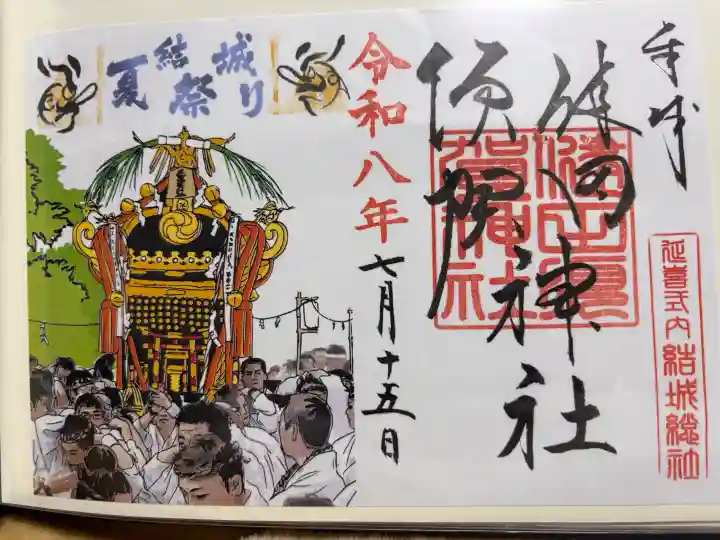 奉拝
延喜式内 結城総社
健田
須賀
神社
健田須
賀神社
令和八年
七月十五日
結城
夏祭り